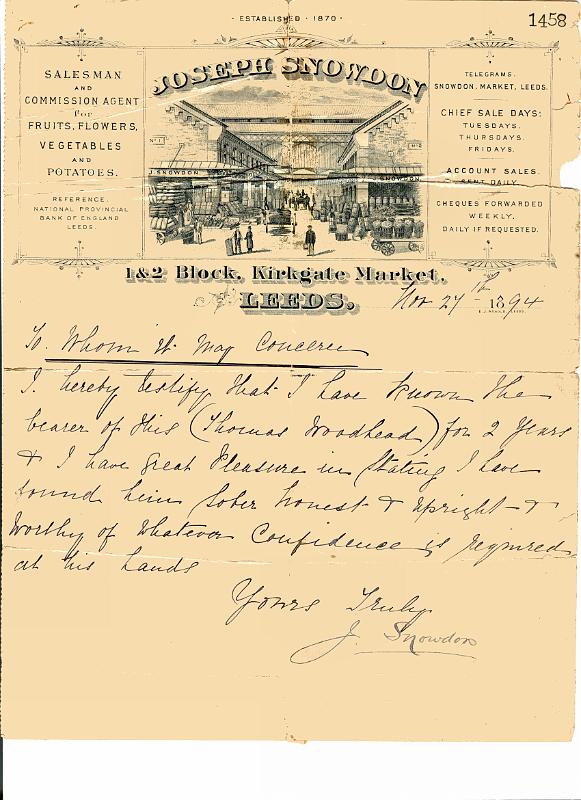 · ESTABLISHED · 1870 ·
1458
SALESMAN
AND
COMMISSION AGENT
For
FRUITS, FLOWERS,
VEGETABLES
AND
POTATOES.
REFERENCE.
NATIONAL PROVINCIAL
BANK OF ENGLAND
LEEDS.
JOSEPH SNOWDON
No 1
No 2
J. SNOWDON
SNOWDON
TELEGRAMS.
SNOWDON, MARKET, LEEDS.
CHIEF SALE DAYS:
TUESDAYS.
THURSDAYS.
FRIDAYS.
ACCOUNT SALES.
SENT DAILY.
CHEQUES FORWARDED
WEEKLY.
DAILY IF REQUESTED.
1 & 2 Block, Kirkgate Market,
LEEDS,
Nov 27th 1894
To Whom it May Concern
I hereby testify that I have known the
bearer of this (Thomas Woodhead) for 2 Years
& I have great Pleasure in Stating I have
found him Sober honest & upright &
Worthy of Whatever Confidence is required
at his hands
Yours Truly
J. Snowdon